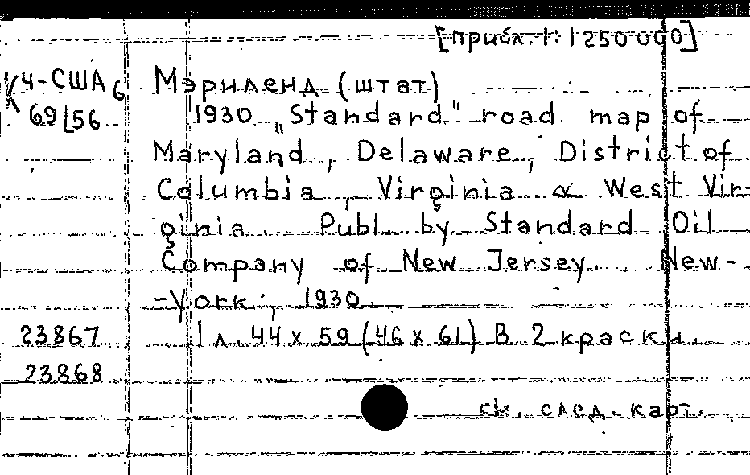 [прибл. 1:1250000]
К4-США6
69/56
Мэриленд (штат)
1930 „Standard" road map of
Maryland, Delaware, District of
Columbia, Virginia & West Vir-
ginia. Publ. by Standard Oil
Company of New Jersey. New-
-York, 1930.
1 л. 44 x 59 (46 x 61) В 2 краски.
23867
23868
см. след. карт.